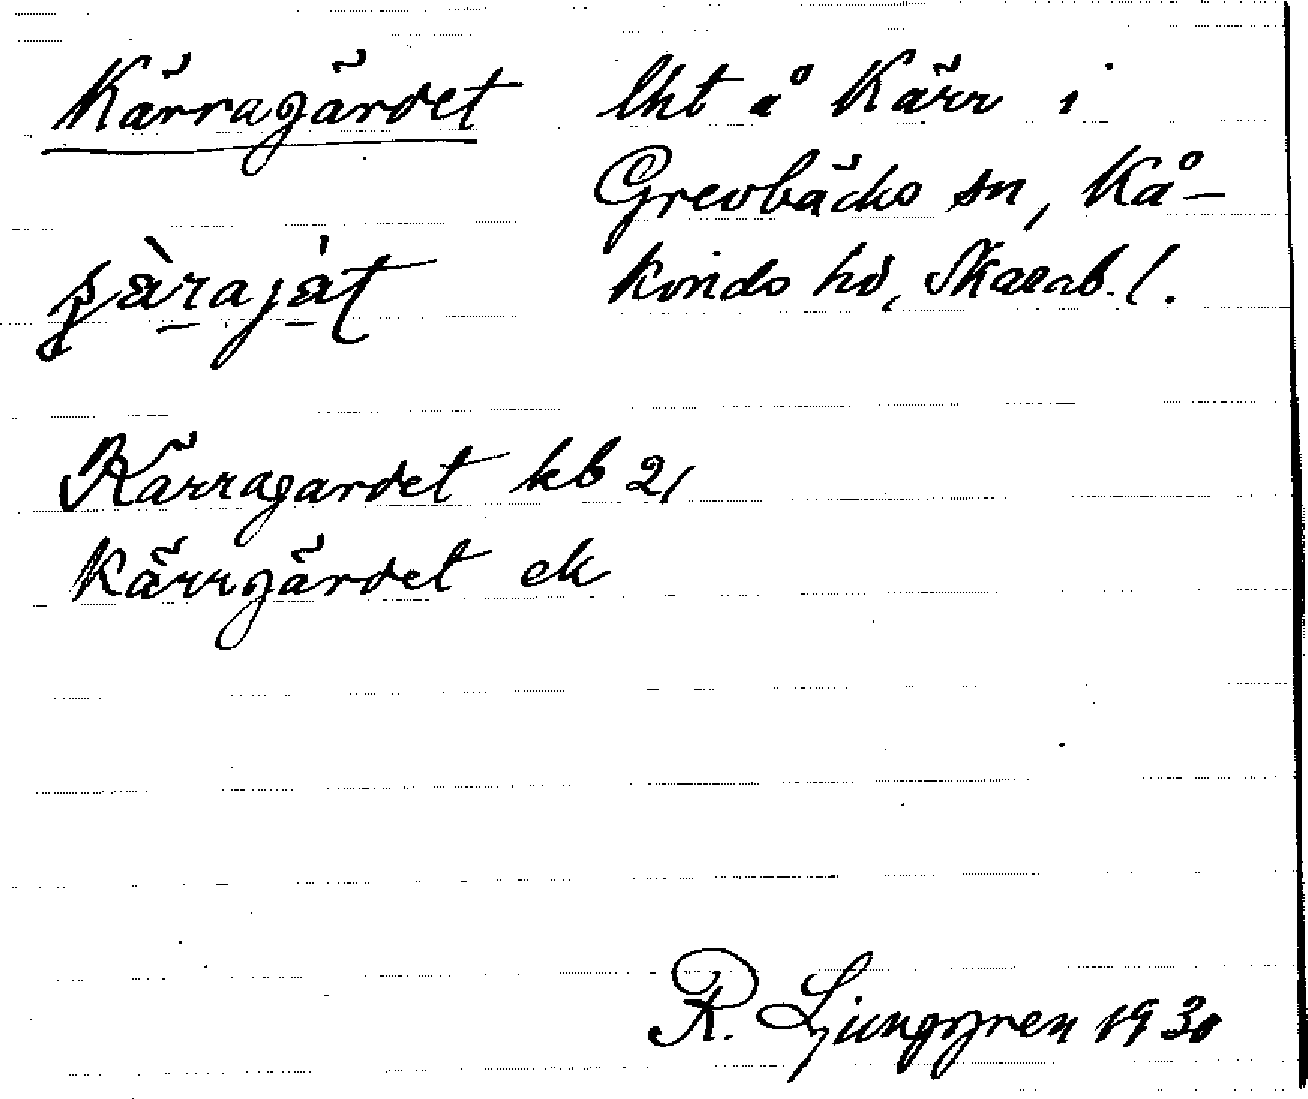 Kärragärdet
lht å Kärr i
Grevbäcks sn, Kå-
kinds hd, Skarab. l.
Kärragardet kb 21
Kärrgärdet ek
R. Ljunggren 1930